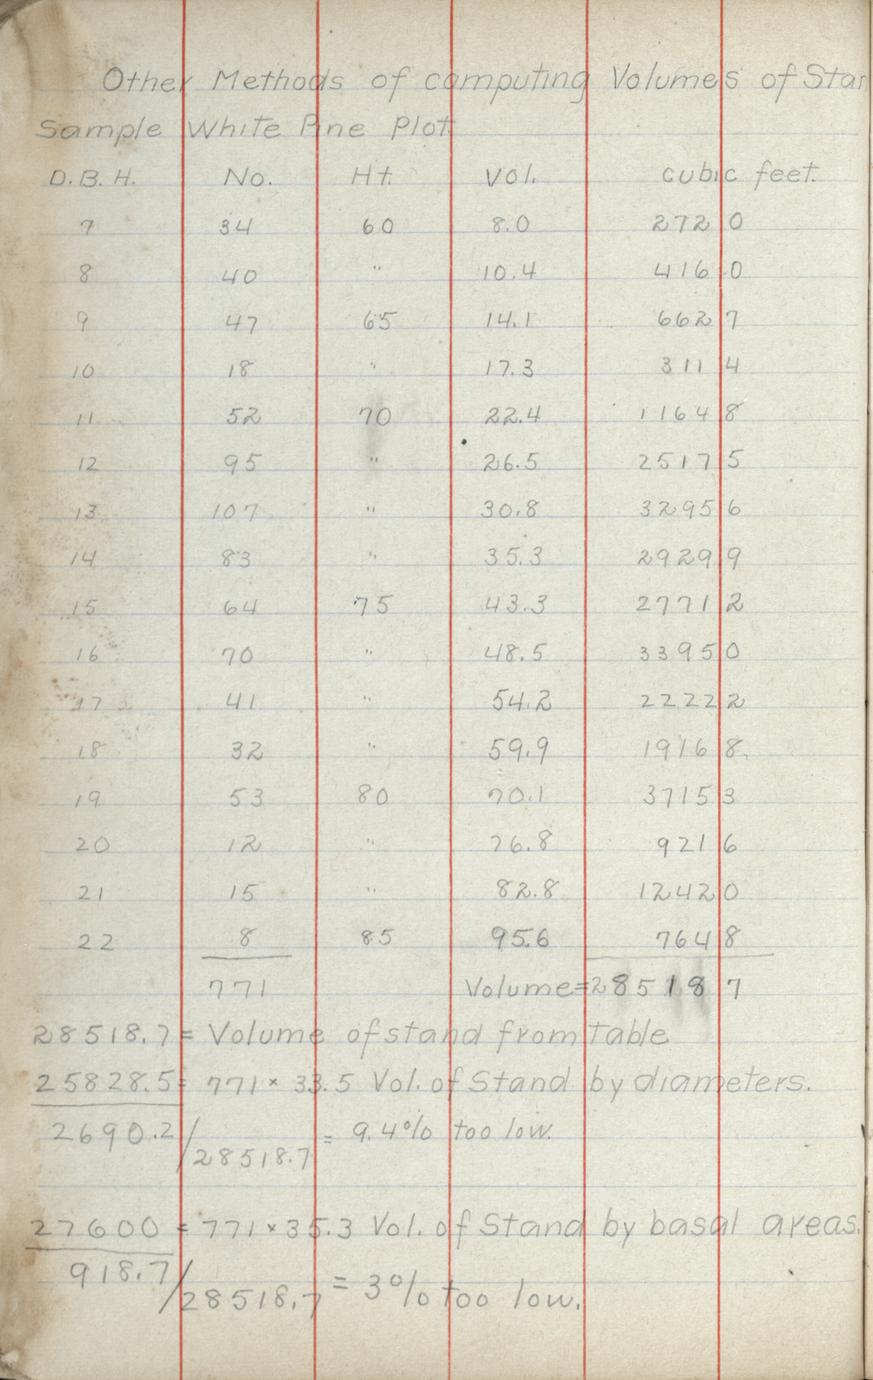 Other Methods of computing Volumes of Stan
Sample White Pine Plot
D.B.H. No. Ht. Vol. cubic feet.
7 34 60 8.0 272 0
8 40 " 10.4 416 0
9 47 65 14.1 662 7
10 18 " 17.3 311 4
11 52 70 22.4 1164 8
12 95 " 26.5 2517 5
13 107 " 30.8 3295 6
14 83 " 35.3 2929 9
15 64 75 43.3 2771 2
16 70 " 48.5 3395 0
17 41 " 54.2 2222 2
18 32 " 59.9 1916 8
19 53 80 70.1 3715 3
20 12 " 76.8 921 6
21 15 " 82.8 1242 0
22 8 85 95.6 764 8
771 Volume=28518 7
28518.7 = Volume of stand from table
25828.5 = 771 × 33.5 Vol. of Stand by diameters.
2690.2/28518.7 = 9.4% too low.
27600 = 771 × 35.3 Vol. of Stand by basal areas.
918.7/28518.7 = 3% too low.